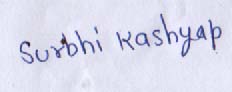 Surbhi Kashyap